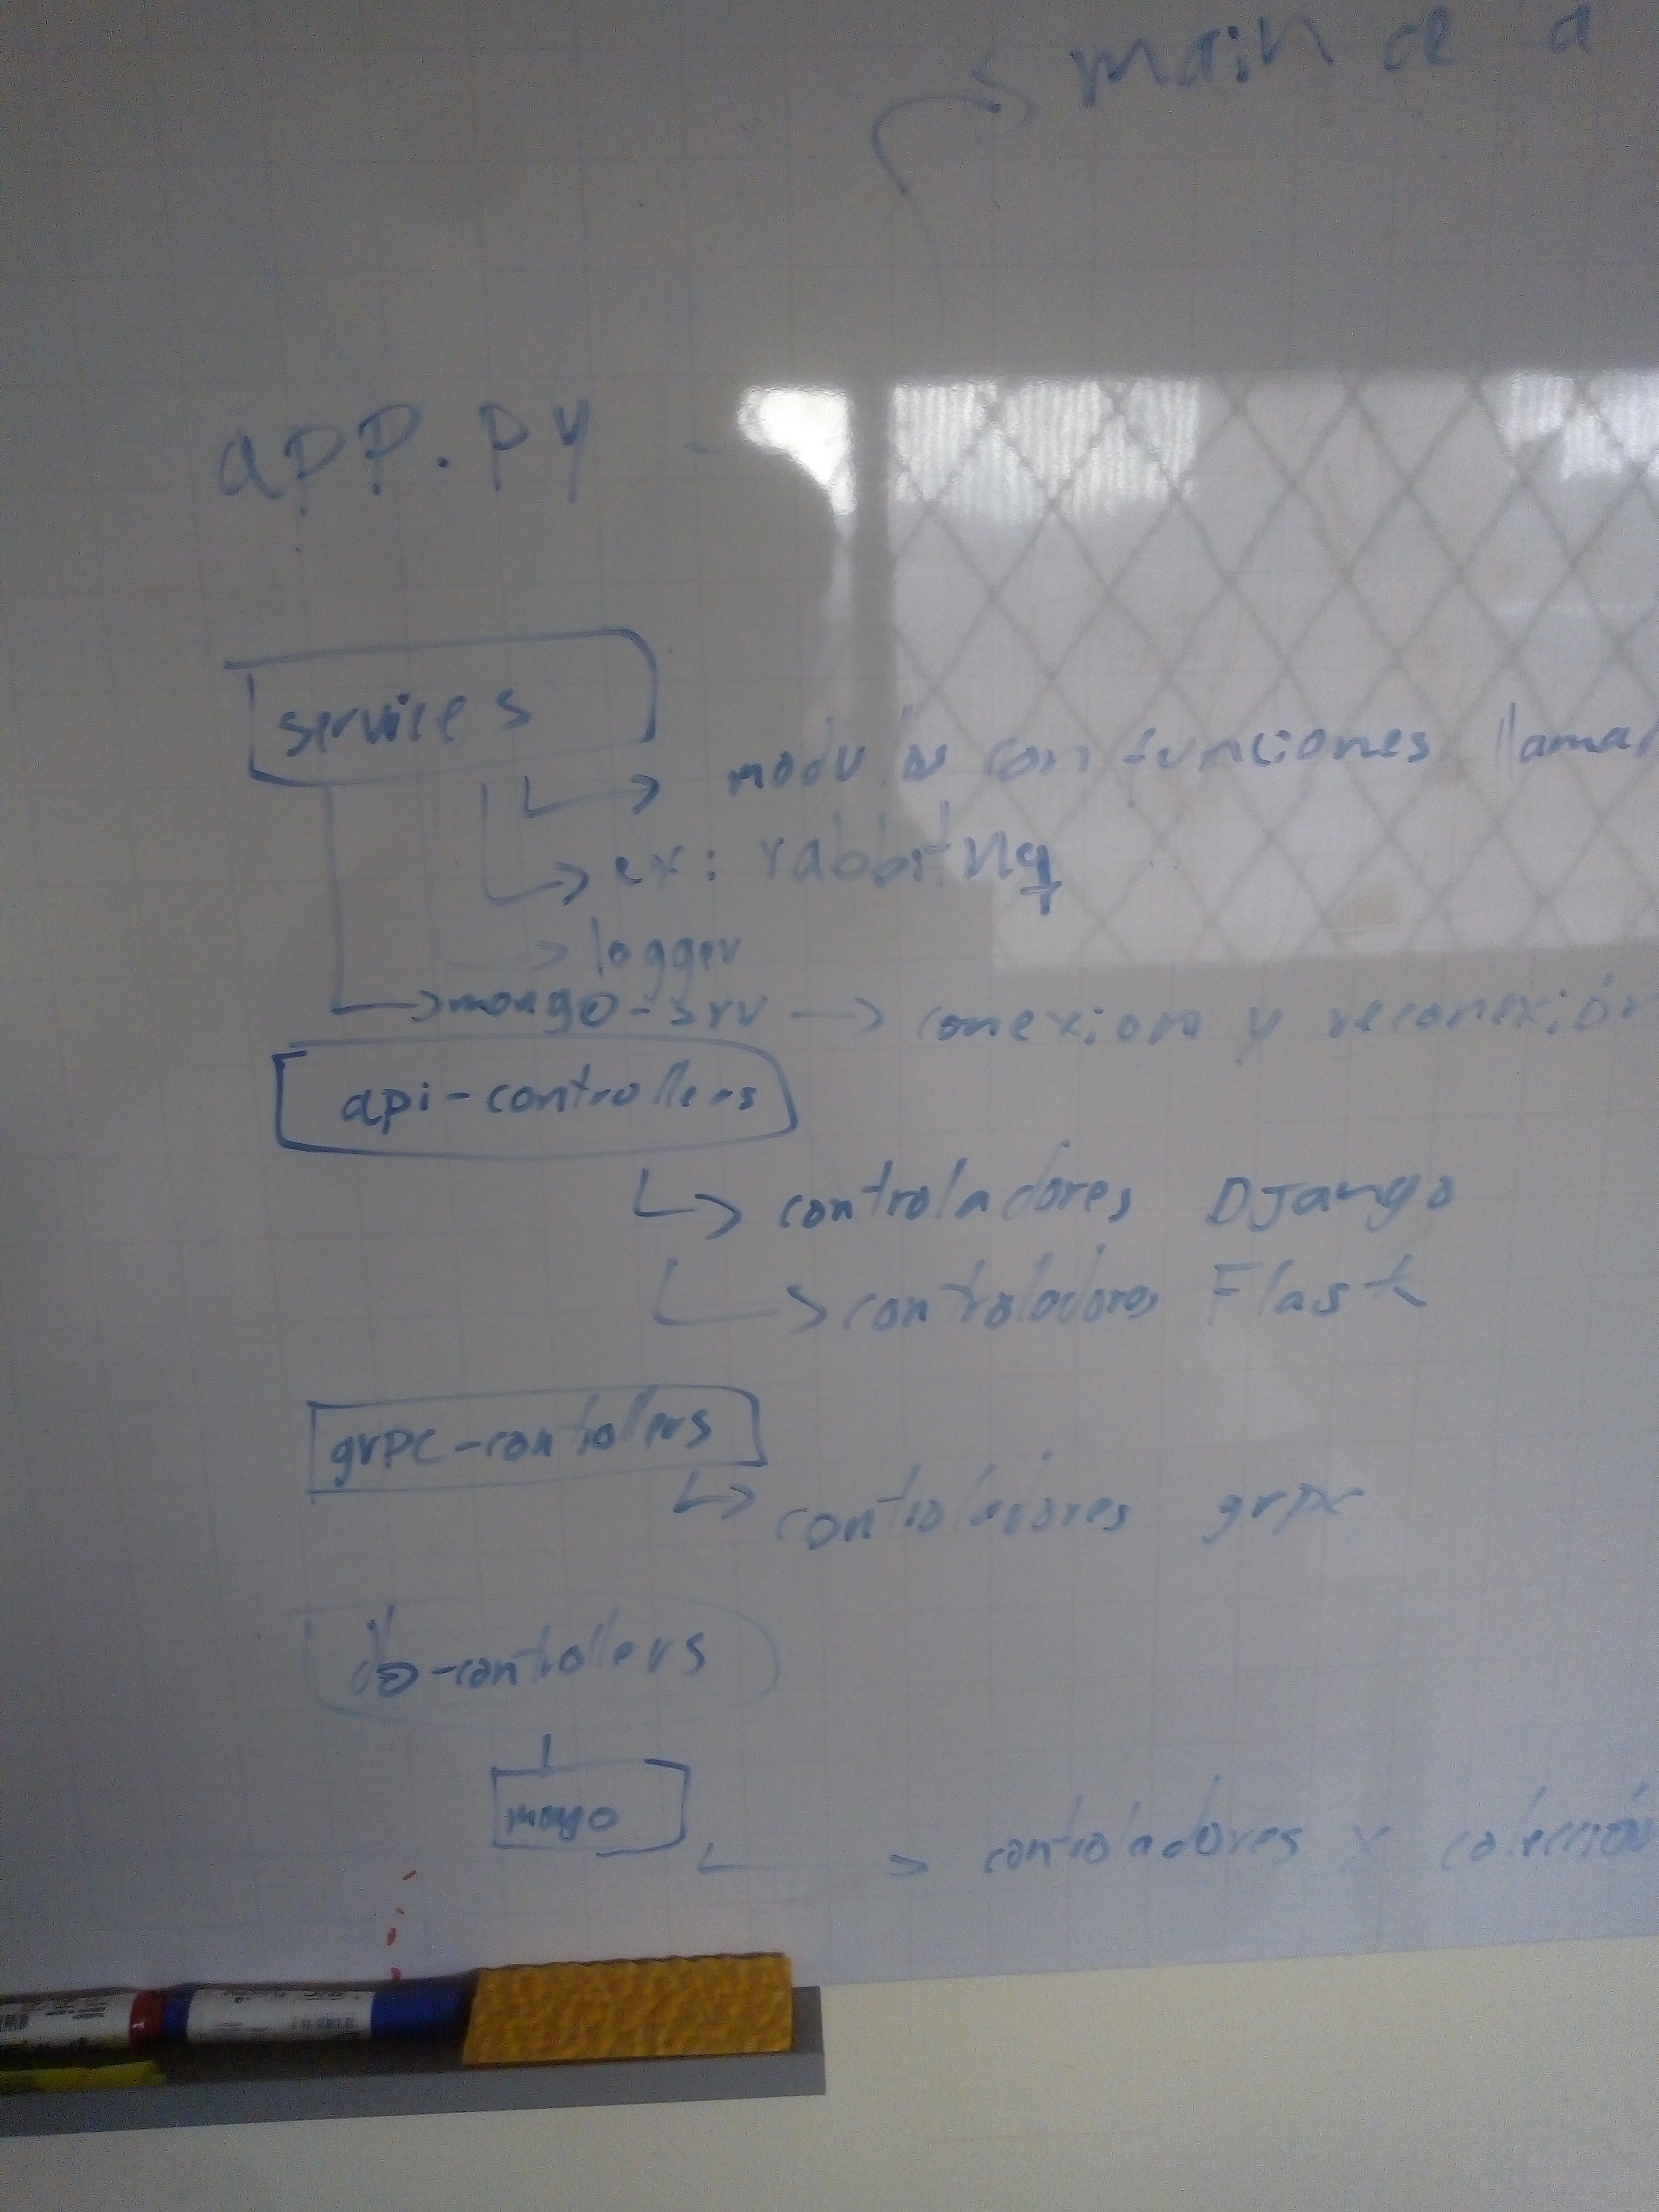 main de a
app.py
services
modulos con funciones llama
ex: rabbitMq
logger
mongo-srv → conexion y reconexión
api-controllers
controladores Django
controladores Flask
grpc-controllers
controladores grpc
db-controllers
mongo
controladores x colección